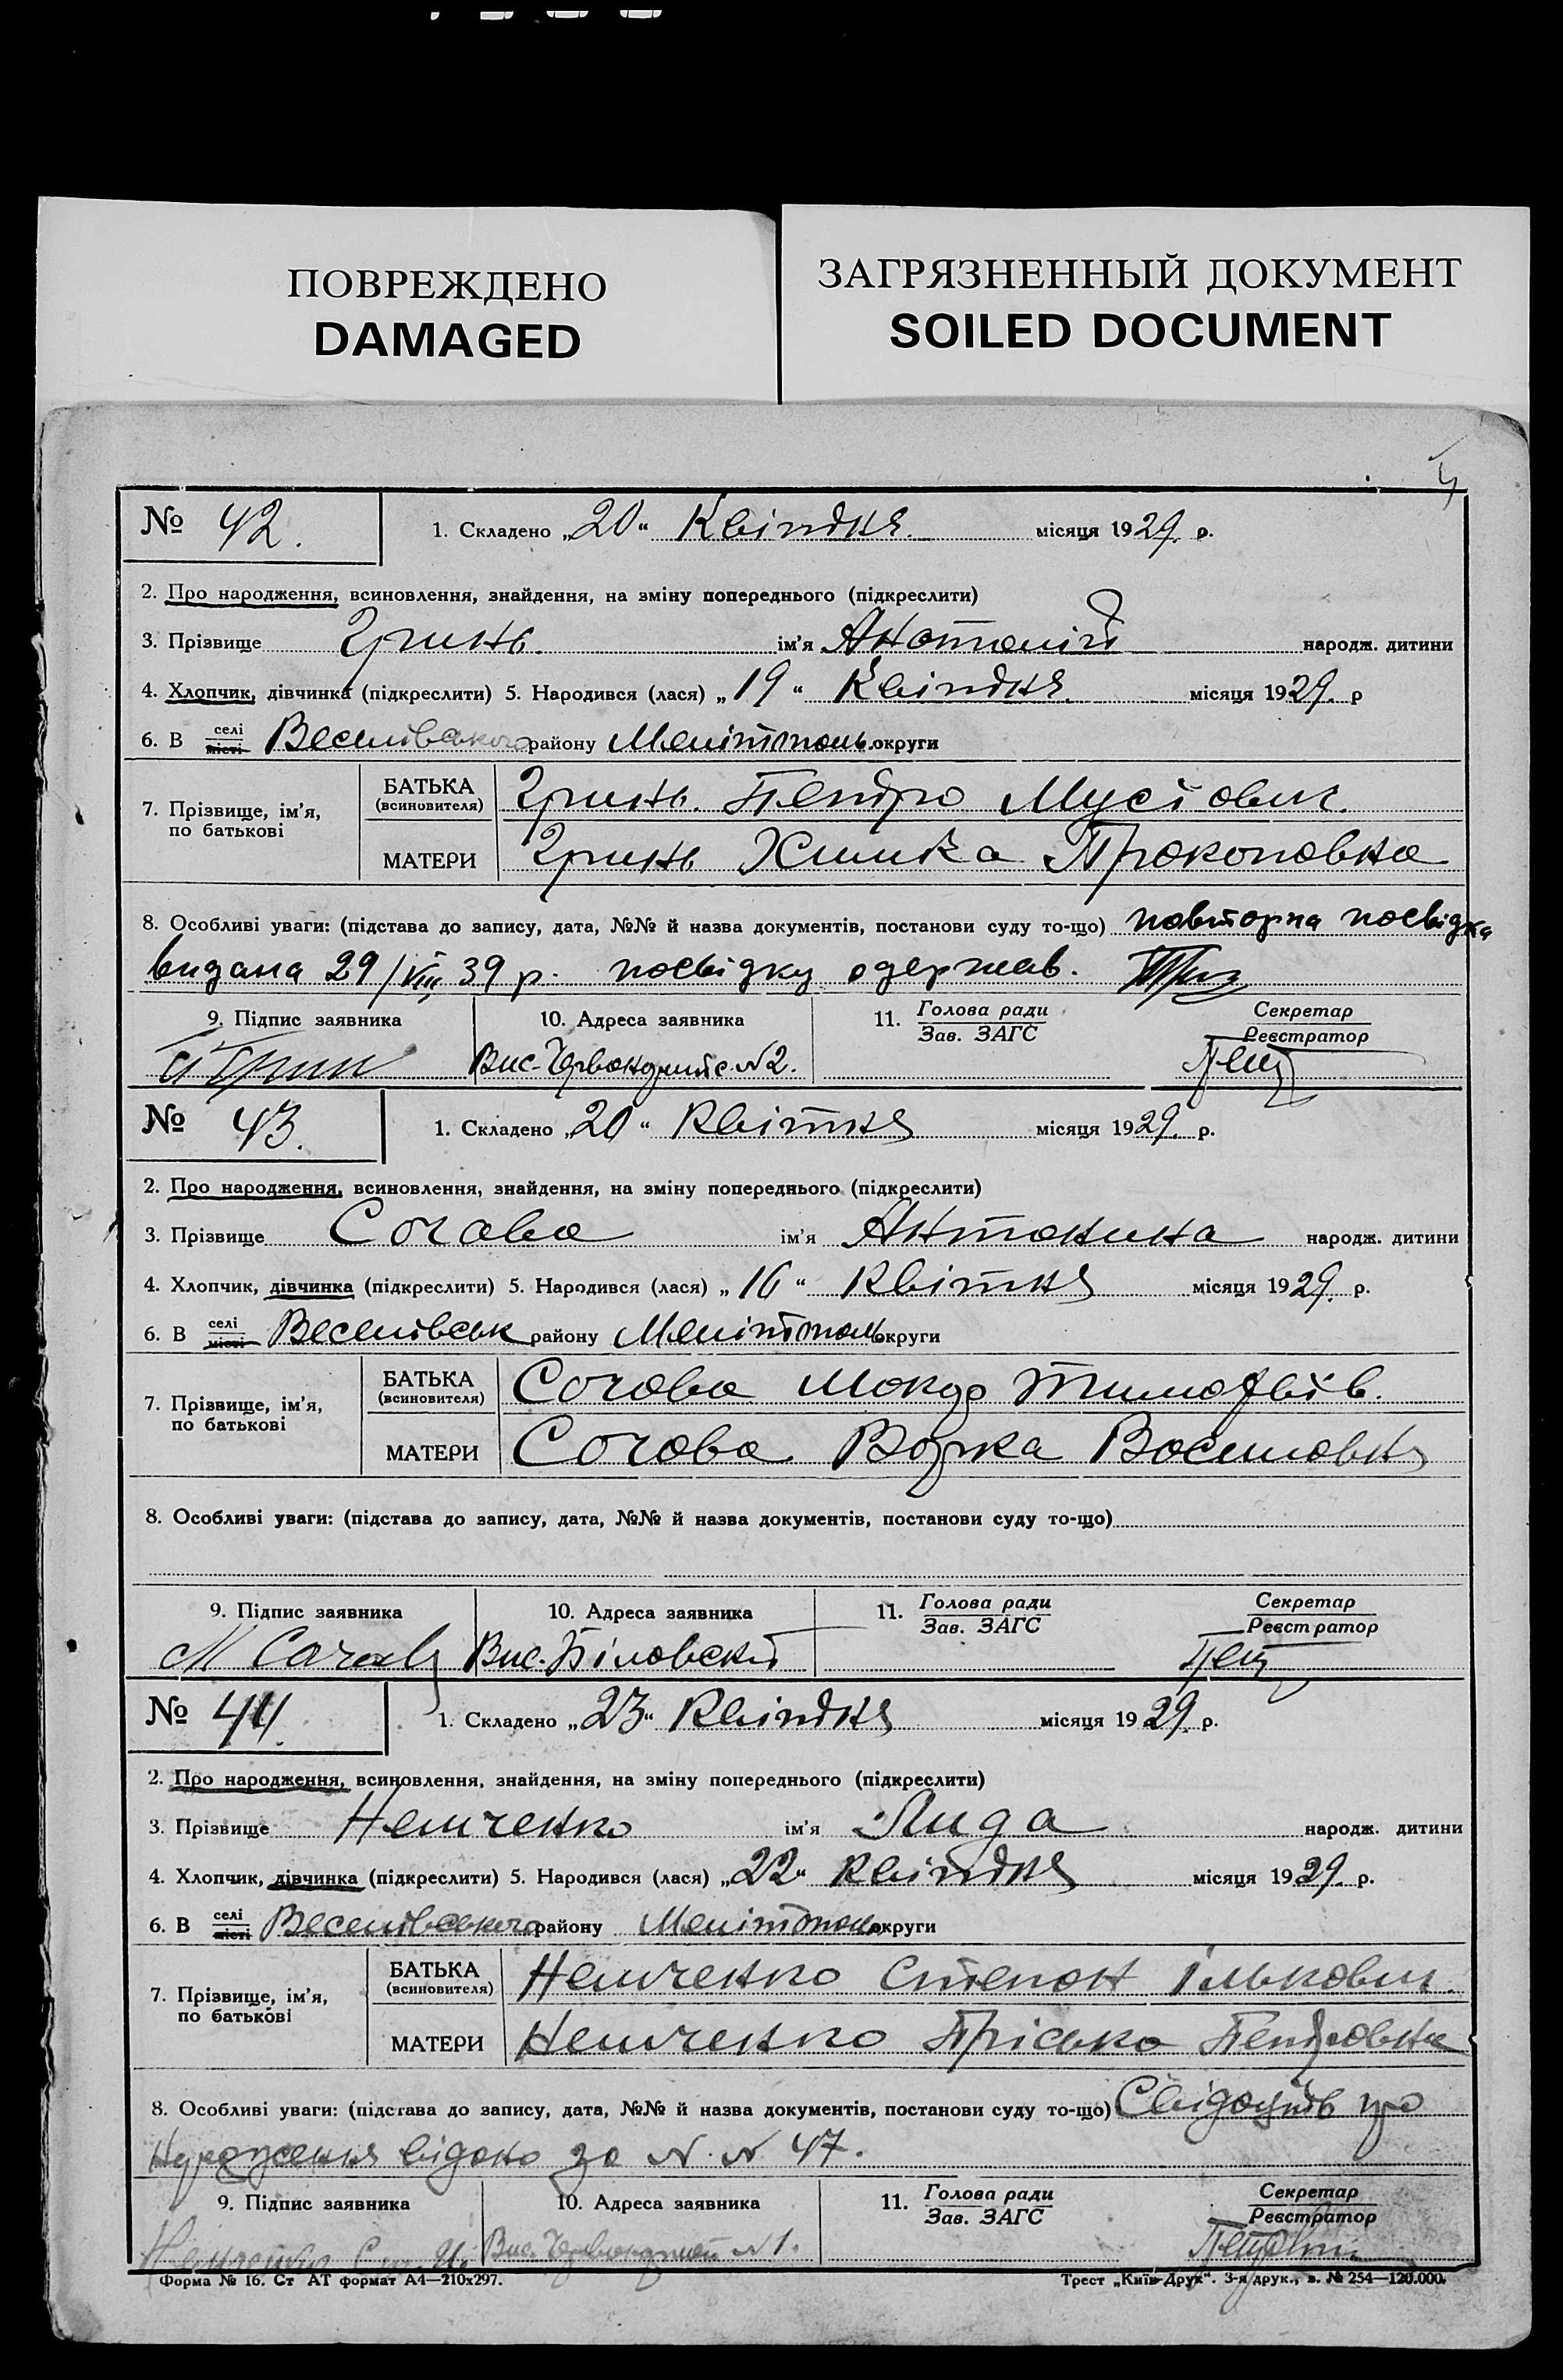 ПОВРЕЖДЕНО
DAMAGED
ЗАГРЯЗНЕННЫЙ ДОКУМЕНТ
SOILED DOCUMENT
№ 42. 1. Складено „20“ Квітдня місяця 1929. р.
2. Про народження, всиновлення, знайдення, на зміну попереднього (підкреслити)
3. Прізвище Гринь ім’я Анатолій народж. дитини
4. Хлопчик, дівчинка (підкреслити) 5. Народився (лася) „19“ Квітдня місяця 1929. р
6. В селі місті Веселівського району Мелітополь округи
7. Прізвище, ім’я, по батькові
БАТЬКА (всиновителя) Гринь Петро Мусієвич.
МАТЕРИ Гринь Химка Прокоповна
8. Особливі уваги: (підстава до запису, дата, №№ й назва документів, постанови суду то-що) повторна посвідка
видана 29/VIII 39 р. посвідку одержав.
9. Підпис заявника 10. Адреса заявника 11. Голова ради Зав. ЗАГС Секретар Реєстратор
Вис. №2.
№ 43. 1. Складено „20“ Квітня місяця 1929. р.
2. Про народження, всиновлення, знайдення, на зміну попереднього (підкреслити)
3. Прізвище Сочава ім’я Антонина народж. дитини
4. Хлопчик, дівчинка (підкреслити) 5. Народився (лася) „16“ Квітня місяця 1929. р.
6. В селі місті Веселівськ району Мелітополь округи
7. Прізвище, ім’я, по батькові
БАТЬКА (всиновителя) Сочава Макар Тимофіїв.
МАТЕРИ Сочава Варка
8. Особливі уваги: (підстава до запису, дата, №№ й назва документів, постанови суду то-що)
9. Підпис заявника 10. Адреса заявника 11. Голова ради Зав. ЗАГС Секретар Реєстратор
М Сочав Вис. Біловский
№ 44. 1. Складено „23“ Квітдня місяця 1929. р.
2. Про народження, всиновлення, знайдення, на зміну попереднього (підкреслити)
3. Прізвище Немченко ім’я Лида народж. дитини
4. Хлопчик, дівчинка (підкреслити) 5. Народився (лася) „22“ Квітдня місяця 1929. р.
6. В селі місті Веселівського району Мелітополь округи
7. Прізвище, ім’я, по батькові
БАТЬКА (всиновителя) Немченко Степан Ількович.
МАТЕРИ Немченко Пріська Петровна
8. Особливі уваги: (підстава до запису, дата, №№ й назва документів, постанови суду то-що) про
відано за N. N 47.
9. Підпис заявника 10. Адреса заявника 11. Голова ради Зав. ЗАГС Секретар Реєстратор
Немченко Вис. N1.
Форма № 16. Ст АТ формат А4—210х297. Трест „Київ-Друк“. 3-я друк., з. № 254—120.000.